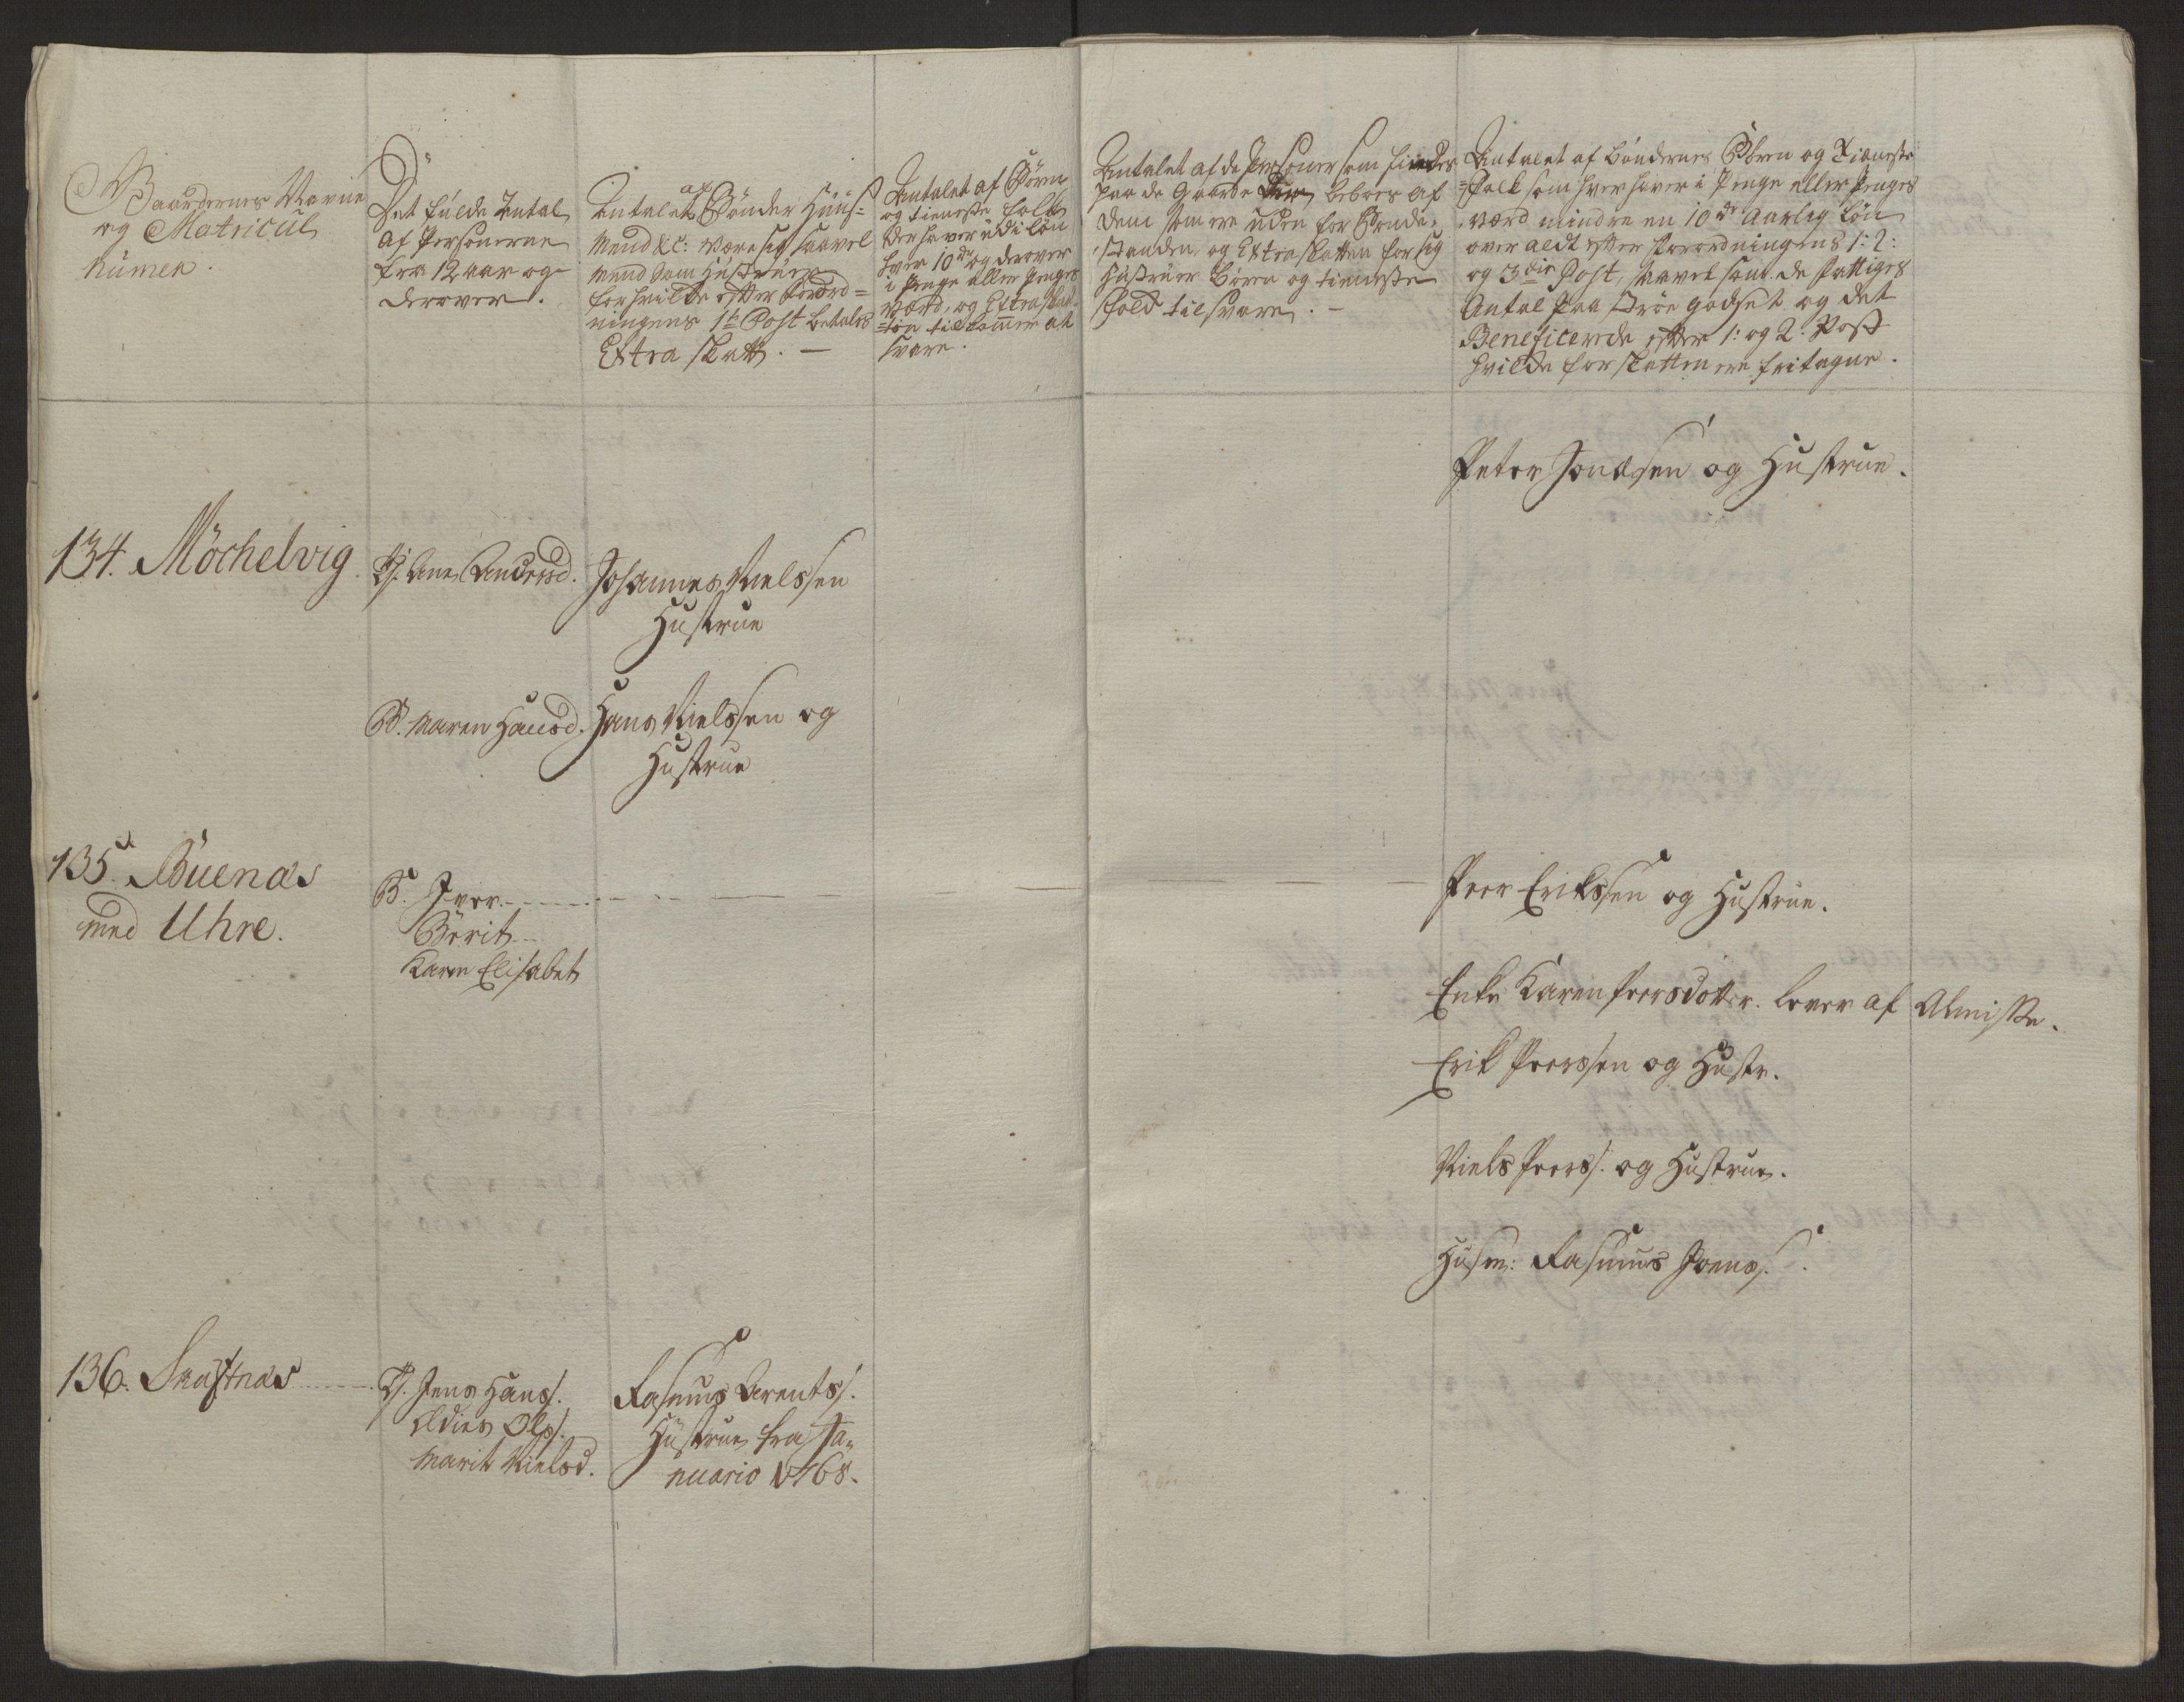 Gaardernes Navne
og Matricul
Numer.
Det fulde Antal
af Personerne
fra 12 aar og
derover.
Antalet af Bönder Huus-
mend &c: være sig saavel
mend som Hustruer
for hvilke efter Forord-
ningens 1te Post betales
Extra skatt. —
Antalet af Börn
og tieneste folk
der haver udi löн
hver 10 dr og derover
i Penge eller Penges
værd, og Extraskat-
ten tilkommer at
svare.
Antalet af de Personer som findes
paa de Gaarde som beboes af
dem som ere uden for Bonde-
standen og Extraskatten for sig
Hustruer Börn og tieneste
folk tilsvare. —
Antalet af böndernes Börn og Tieneste
-folk som hver haver i Penge eller Penges
værd mindre en 10 dr aarlig Lön
over aldt efter Forordningens 1: 2:
og 3die Post, saavel som de fattiges
Antal paa Frie godset og det
Beneficerede efter 1: og 2: Post
hvilke for skatten ere fritagne.
Peter Jonæsen og Hustrue.
134. Möchelvig. Tj. Ane Andersd. Johannes Nielssen
Hustrue
B. Maren Hansd. Hans Nielssen og
Hustrue
135. Buenæs
med Uhre.
B. Iver
Börit
Karen Elisabet
Peer Erikssen og Hustrue.
Enke Karen Peersdotter. lever af Almisse.
Erik Peerssen og Hustr.
Niels Peers/. og Hustrue.
Husm: Rasmus Joens/.
136. Skaftnæs Tj. Jens Hans/. Rasmus Arents/.
Ædies Ols/. Hustrue fra Ja-
Marit Nielsd. nuario 1768.